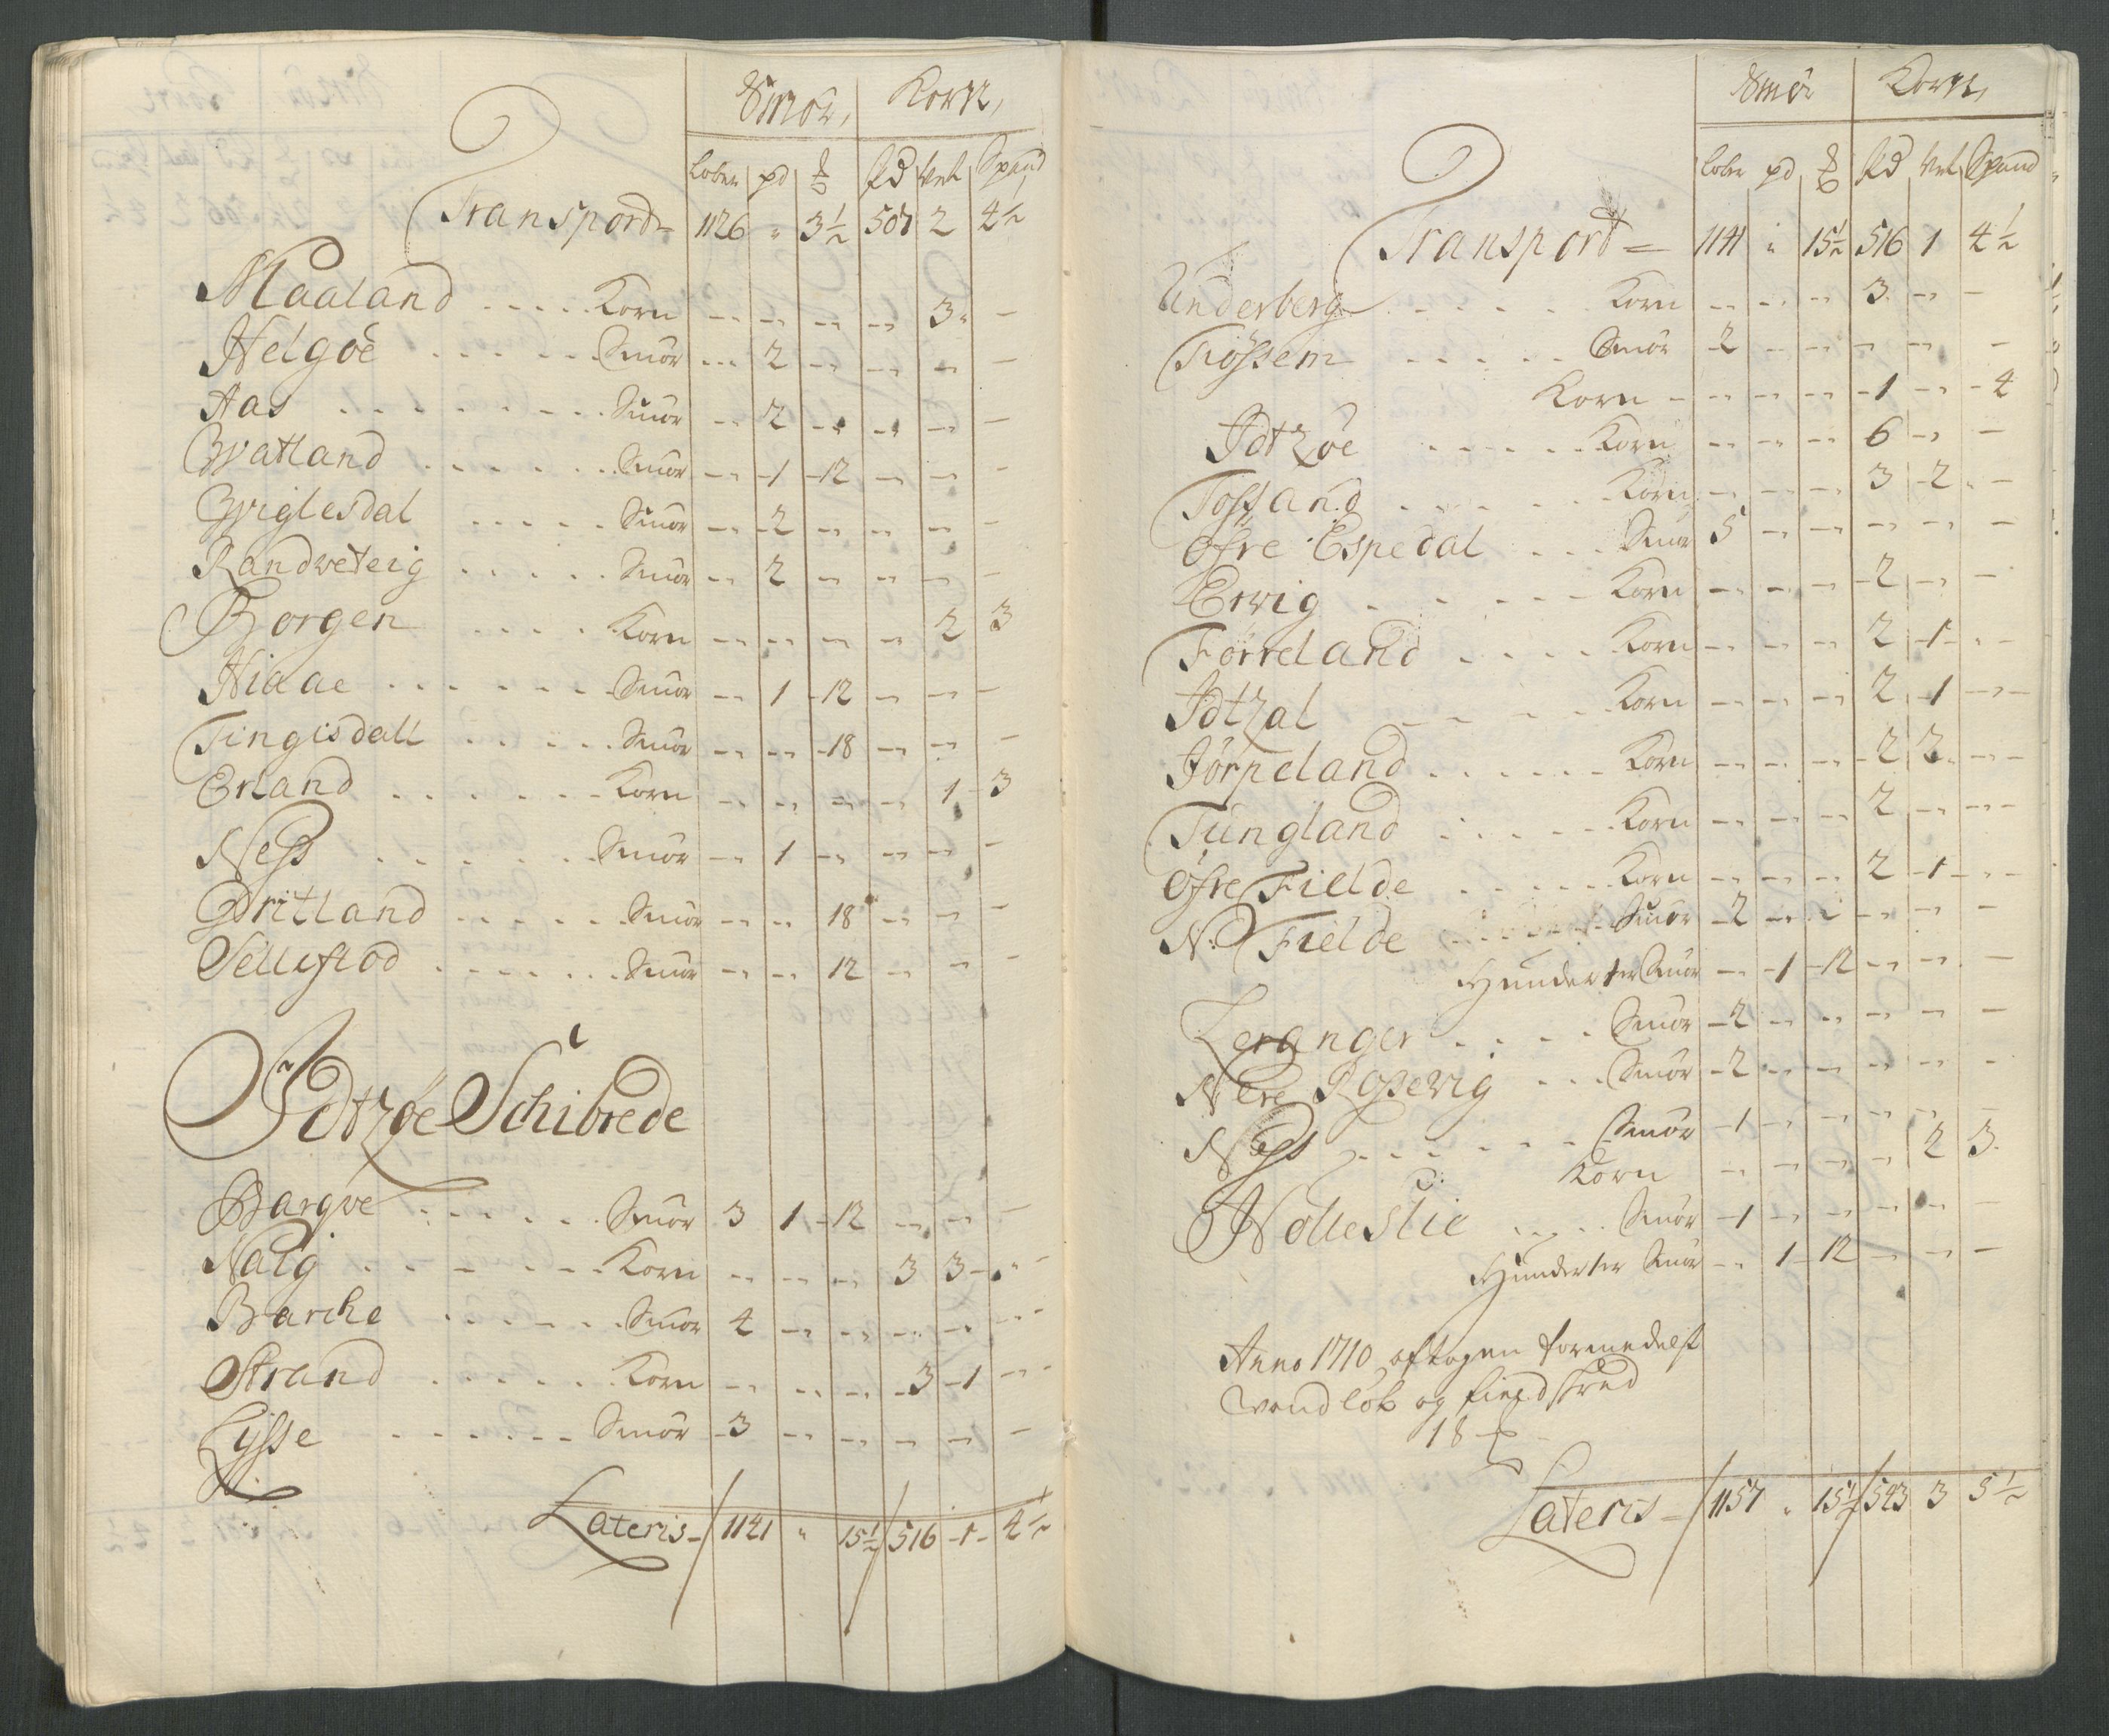 Smör, Korn,
Löber pd ℔ Pd Vet Spand
Transport 1126 " 3½ 507 2 4½
Maaland Korn - - - - 3 -
Helgöe Smör - 2 - - - -
Aas Smör - 2 - - - -
Qvatland Smör - 1 12 - - -
Qviglesdal Smör - 2 - - - -
Randveteig Smör - 2 - - - -
Borgen Korn - - - - 2 3
Hiaae Smör - 1 12 - - -
Tingisdall Smör - - 18 - - -
Erland Korn - - - - 1 3
Ness Smör - 1 - - - -
Dritland Smör - - 18 - - -
Smör - - 12 - - -
Idtzöe Schibrede
Bargve Smör 3 1 12 - - -
Naig Korn - - - 3 3 -
Barche Smör 4 - - - - -
Strand Korn - - - 3 1 -
Lysse Smör 3 - - - - -
Lateris 1141 " 15½ 516 1 4½
Smör Korn,
Löber pd ℔ Pd Vet Spand
Transport 1141 " 15½ 516 1 4½
Underberg Korn - - - 3 - -
Tiössem Smör 2 - - - - -
Korn - - - 1 - 4
Idtzöe Korn - - - 6 - -
Korn - - - 3 2 -
Öfre Espedal Smör 5 - - - - -
Ervig Korn - - - 2 - -
Förreland Korn - - - 2 1 -
Idtzal Korn - - - 2 1 -
Jörpeland Korn - - - 2 2 -
Tungland Korn - - - 2 - -
Öfre Fielde Korn - - - 2 1 -
N: Fielde Smör 2 - - - - -
Hunderter Smör - 1 12 - - -
Leranger Smör 2 - - - - -
Nere Rossevig Smör 2 - - - - -
Ness Smör 1 - - - - -
Korn - - - - 2 3
Nolleslie Smör 1 - - - - -
Hunderter Smör - 1 12 - - -
Anno 1710 aftagen formedelst
vandlöb og fieldskred
18 ℔
Lateris 1157 " 15½ 543 3 5½